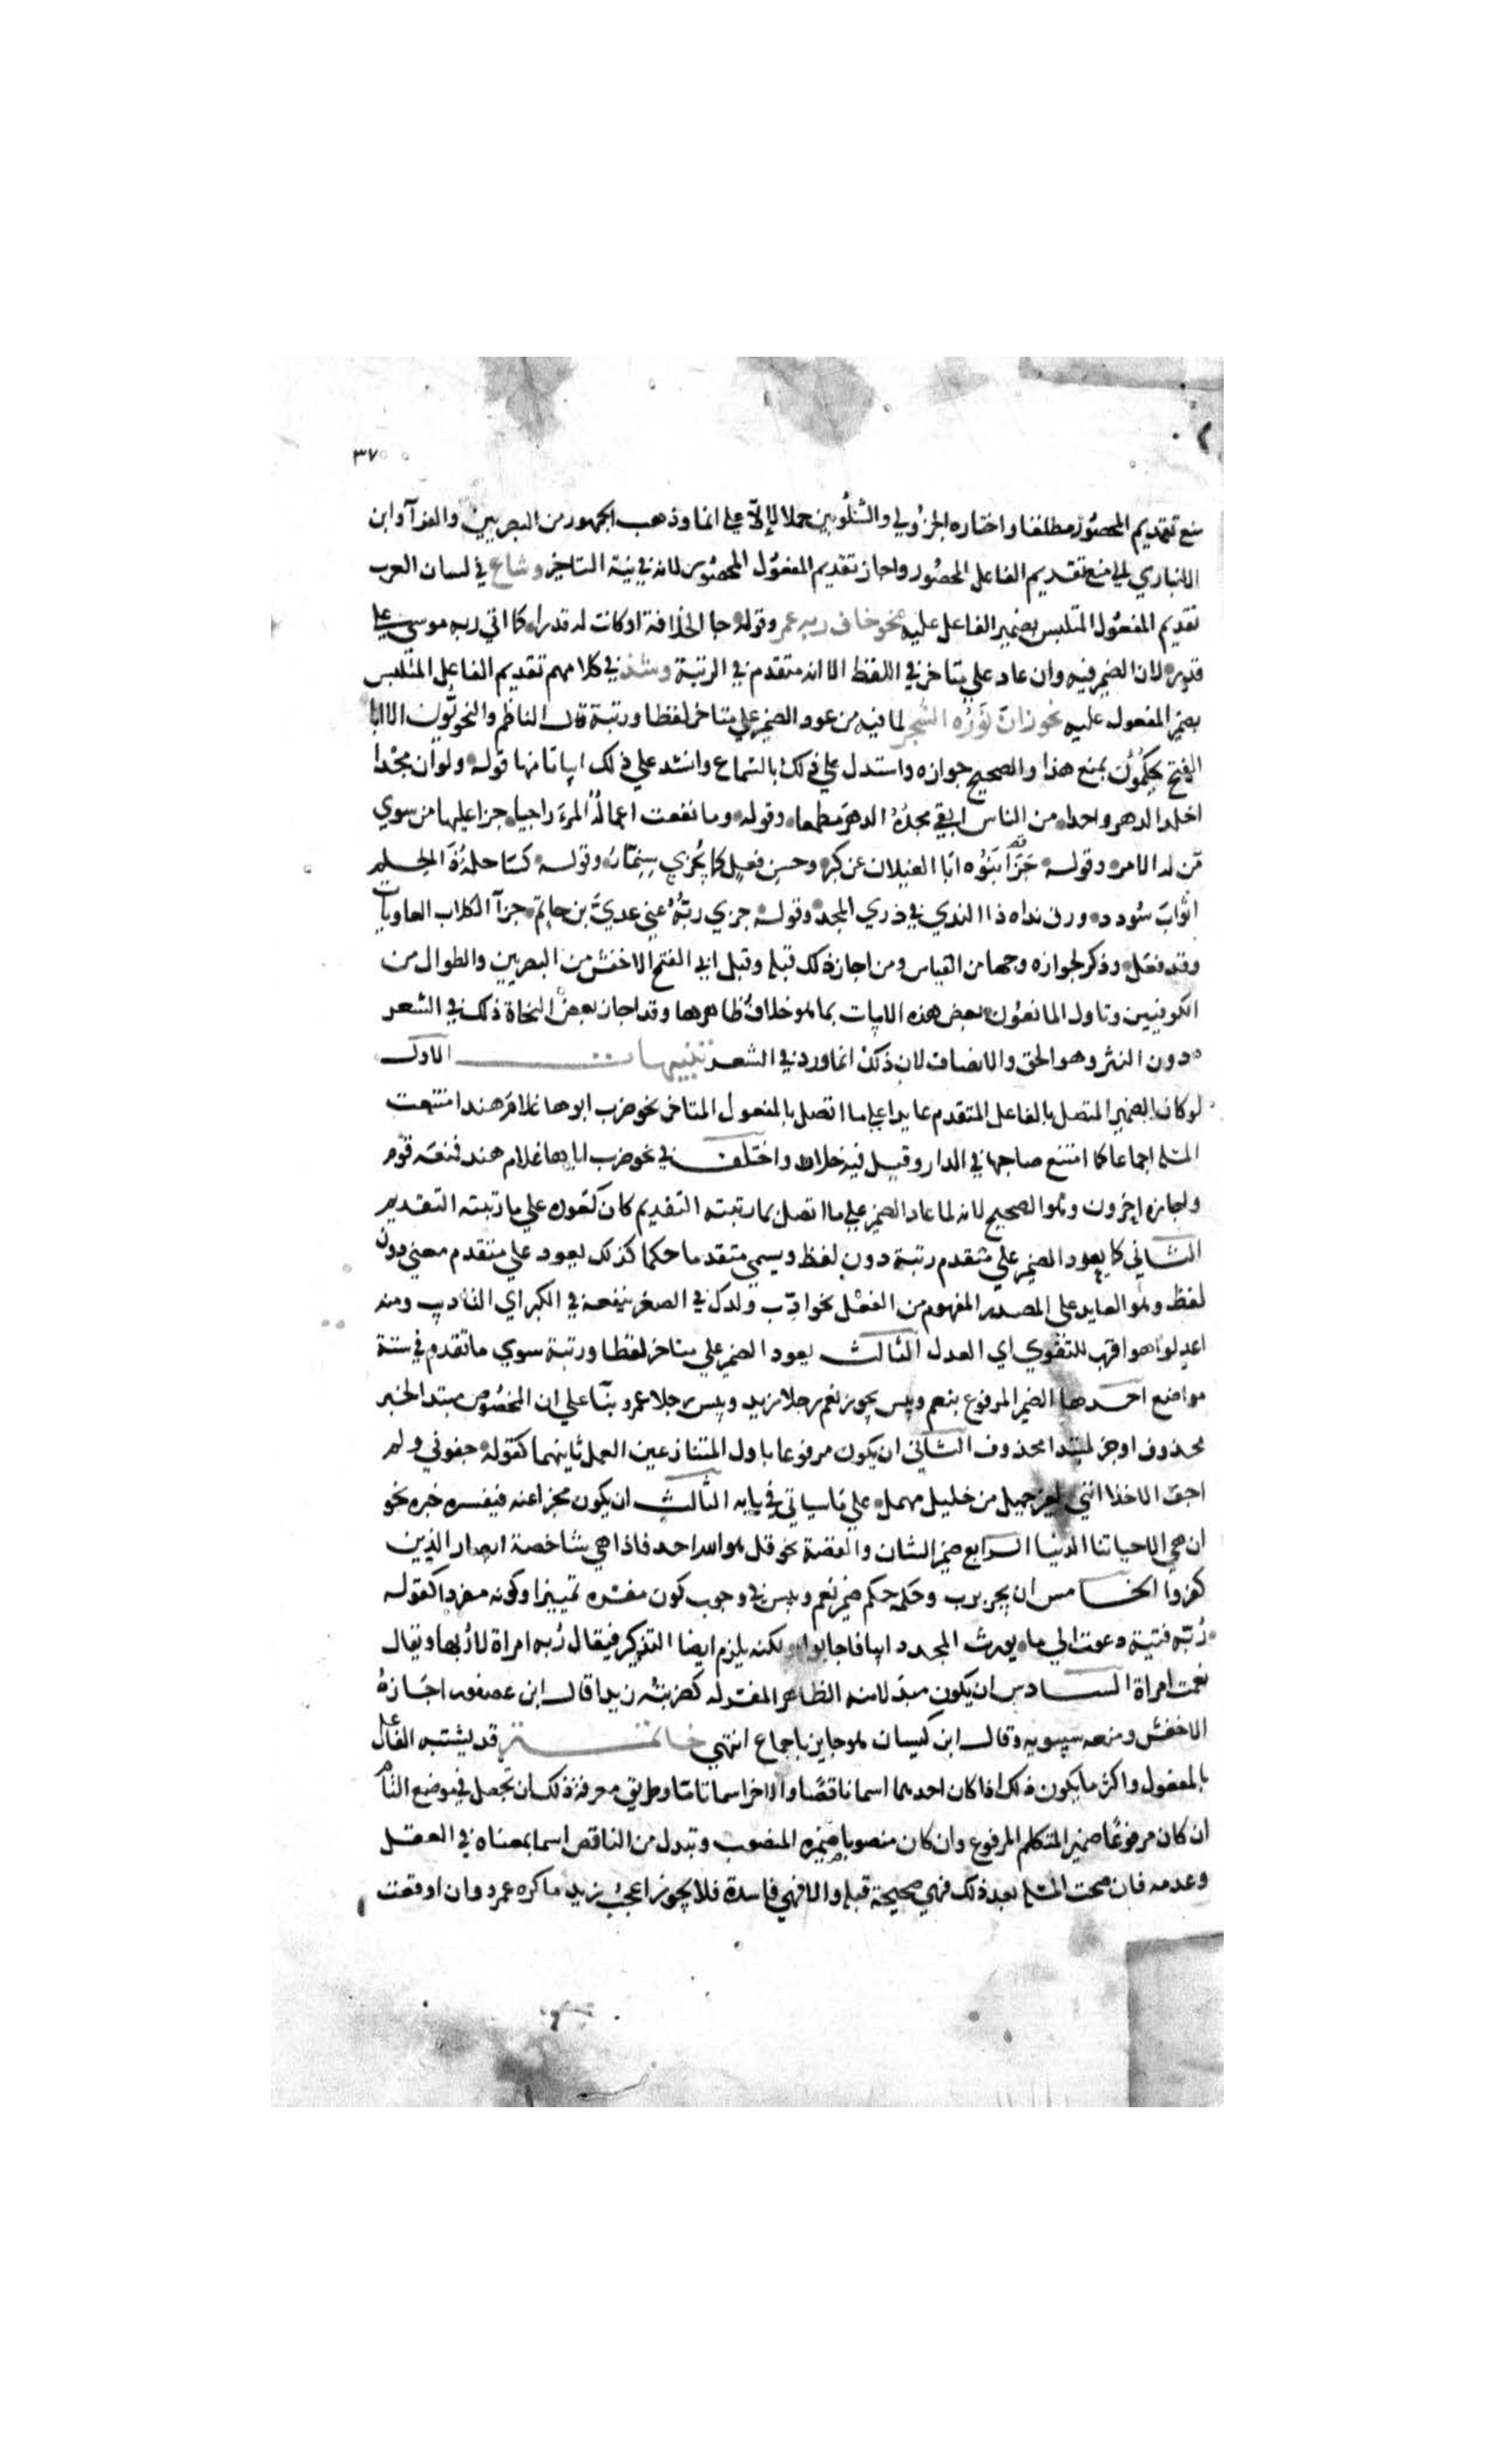 ٣٧
منع تقديم المحصور مطلقا واختاره الجزولي والشلوبين حملا لإلا على انما وذهب الجمهور من البصريين والفرآ وابن
الانباري الي منع تقديم الفاعل المحصور واجاز تقديم المفعول المحصور لانه في نية التاخير وشاع في لسان العرب
تقديم المفعول المتلبس بضمير الفاعل عليه نحو خاف ربه عمر وقوله جا الخلافة او كانت له قدرا كما اتي ربه موسي علي
قدر لان الضمير فيه وان عاد علي متاخر في اللفظ الا انه متقدم في الرتبة وشذ في كلامهم تقديم الفاعل المتلبس
بضمير المفعول عليه نحو زان نوره الشجر لما فيه من عود الضمير علي متاخر لفظا ورتبة قال الناظم والنحويون الا ابا
الفتح يحكمون بمنع هذا والصحيح جوازه واستدل علي ذلك بالسماع وانشد علي ذلك ابياتا منها قوله ولو أن مجدا
اخلد الدهر واحدا من الناس ابقي مجدُهُ الدهرَ مطعما وقوله وما نفعت اعمالُهُ المرءَ راجيا جزا عليها من سوي
من له الامر وقوله جزآ بَنُوه ابَا الغيلان عن كبر وحسن فعل كما يُجزي سِنِمّار وقوله كسَا حلمُهُ ذَا الحلم
اثوابَ سُودد ورقي نداه ذا الندي في ذري المجد وقوله جزي ربُّهُ عني عديَّ بن حاتم جزآ الكلاب العاويات
وقد فعل وذكر لجوازه وجها من القياس وممن اجاز ذلك قبله وقبل ابي الفتح الاخفش من البصريين والطوال من
الكوفيين وتاول المانعون بعض هذه الابيات بما هو خلاف ظاهرها وقد اجاز بعض النحاة ذلك في الشعر
دون النثر وهو الحق والانصاف لان ذلك انما ورد في الشعر تنبيهات الاول
لو كان الضمير المتصل بالفاعل المتقدم عايدا علي ما اتصل بالمفعول المتاخر نحو ضرب ابوها غلامَ هند امتنعت
المسئلة اجماعا كما امتنع صاحبها في الدار وقيل فيه خلاف واختلف في نحو ضرب اباها غلام هند فمنعه قوم
واجازه اخرون وهو الصحيح لانه لما عاد الضمير علي ما اتصل بما رتبته التقديم كان كعوده علي ما رتبته التقديم
الثاني كما يعود الضمير علي متقدم رتبة دون لفظ ويسمي متقدما حكما كذلك يعود علي متقدم معني دون
لفظ وهو العايد علي المصدر المفهوم من الفعل نحو ادّب ولدك في الصغر ينفعه في الكبر اي التاديب ومنه
اعدلوا هو اقرب للتقوي اي العدل الثالث يعود الضمير علي متاخر لفظا ورتبة سوي ما تقدم في ستة
مواضع احدها الضمير المرفوع بنعم وبيس نحو نعم رجلا زيد وبيس رجلا عمرو بنآ علي ان المخصوص مبتدا لخبر
محذوف او خبر لمبتدا محذوف الثاني ان يكون مرفوعا باول المتنازعين العمل ثانيهما كقوله جفوني ولم
اجف الاخلا انني لغير جميل من خليل مهمل علي ما سياتي في بابه الثالث ان يكون مخبرا عنه فيفسره خبره نحو
ان هي الا حياتنا الدنيا الرابع ضمير الشان والقصة نحو قل هو الله احد فاذا هي شاخصة ابصار الذين
كفروا الخامس ان يجر برب وحكمه حكم ضمير نعم وبيس في وجوب كون مفسره تمييزا وكونه مفردا كقوله
رُبّه فتية دعوت الي ما يورث المجد دايبا فاجابوا ولكنه يلزم ايضا التذكير فيقال رُبه امراة لا رُبها ويقال
نعمت امراة السادس ان يكون مبدلا منه الظاهر المفسر له كضربته زيدا قال ابن عصفور اجازهُ
الاخفش ومنعه سيبويه وقال ابن كيسان هو جايز باجماع انتهي خاتمة قد يشتبه الفاعل
بالمفعول واكثر ما يكون ذلك اذا كان احدهما اسما ناقصًا والاخر اسما تامّا وطريق معرفة ذلك ان تجعل في موضع التام
ان كان مرفوعًا ضمير المتكلم المرفوع وان كان منصوبا ضميره المنصوب وتبدل من الناقص اسما بمعناه في العقل
وعدمه فان صحت المسئلة بعد ذلك فهي صحيحة قبله والا فهي فاسدة فلا يجوز اعجبُ زيد ما كره عمرو وان اوقعت